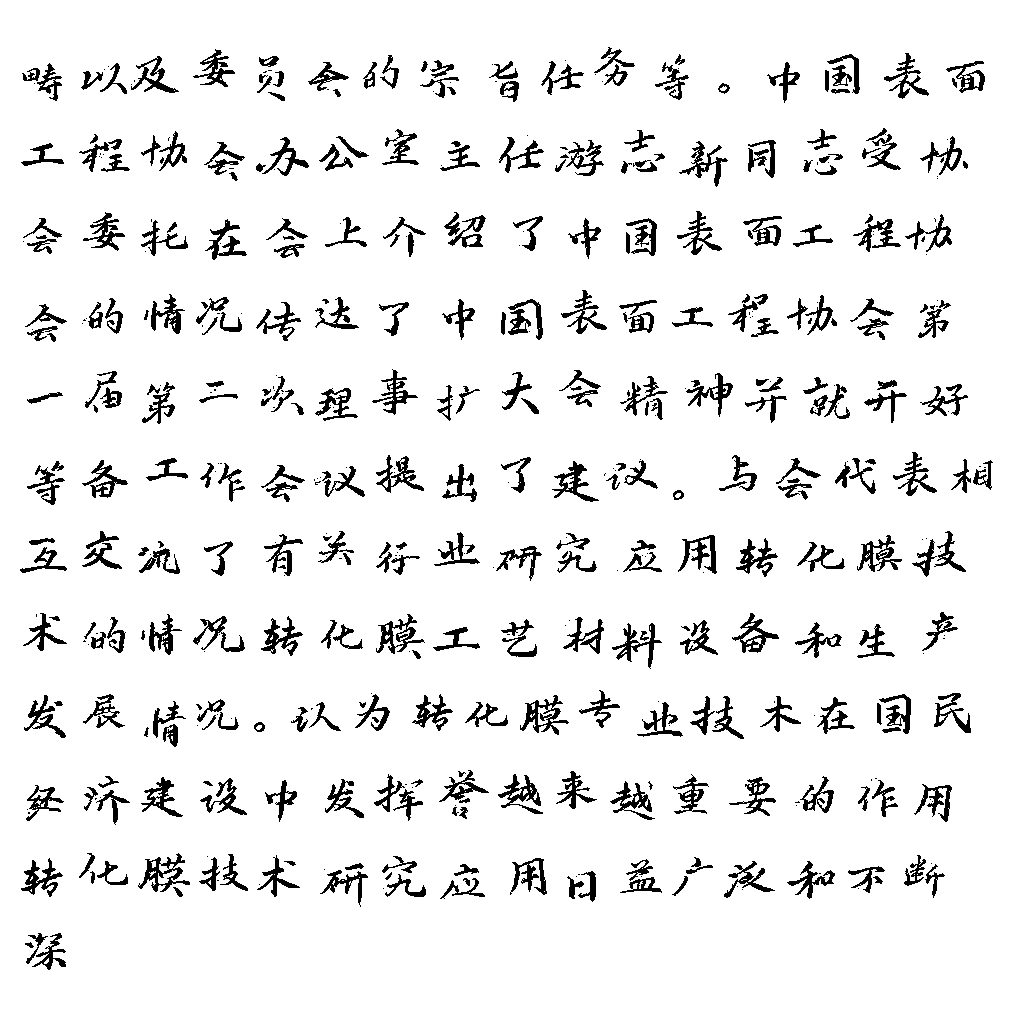 畴以及委员会的宗旨任务等。中国表面
工程协会办公室主任游志新同志受协
会委托在会上介绍了中国表面工程协
会的情况传达了中国表面工程协会第
一届第二次理事扩大会精神并就开好
等备工作会议提出了建议。与会代表相
互交流了有关行业研究应用转化膜技
术的情况转化膜工艺材料设备和生产
发展情况。认为转化膜专业技术在国民
经济建设中发挥誉越来越重要的作用
转化膜技术研究应用日益广泛和不断
深